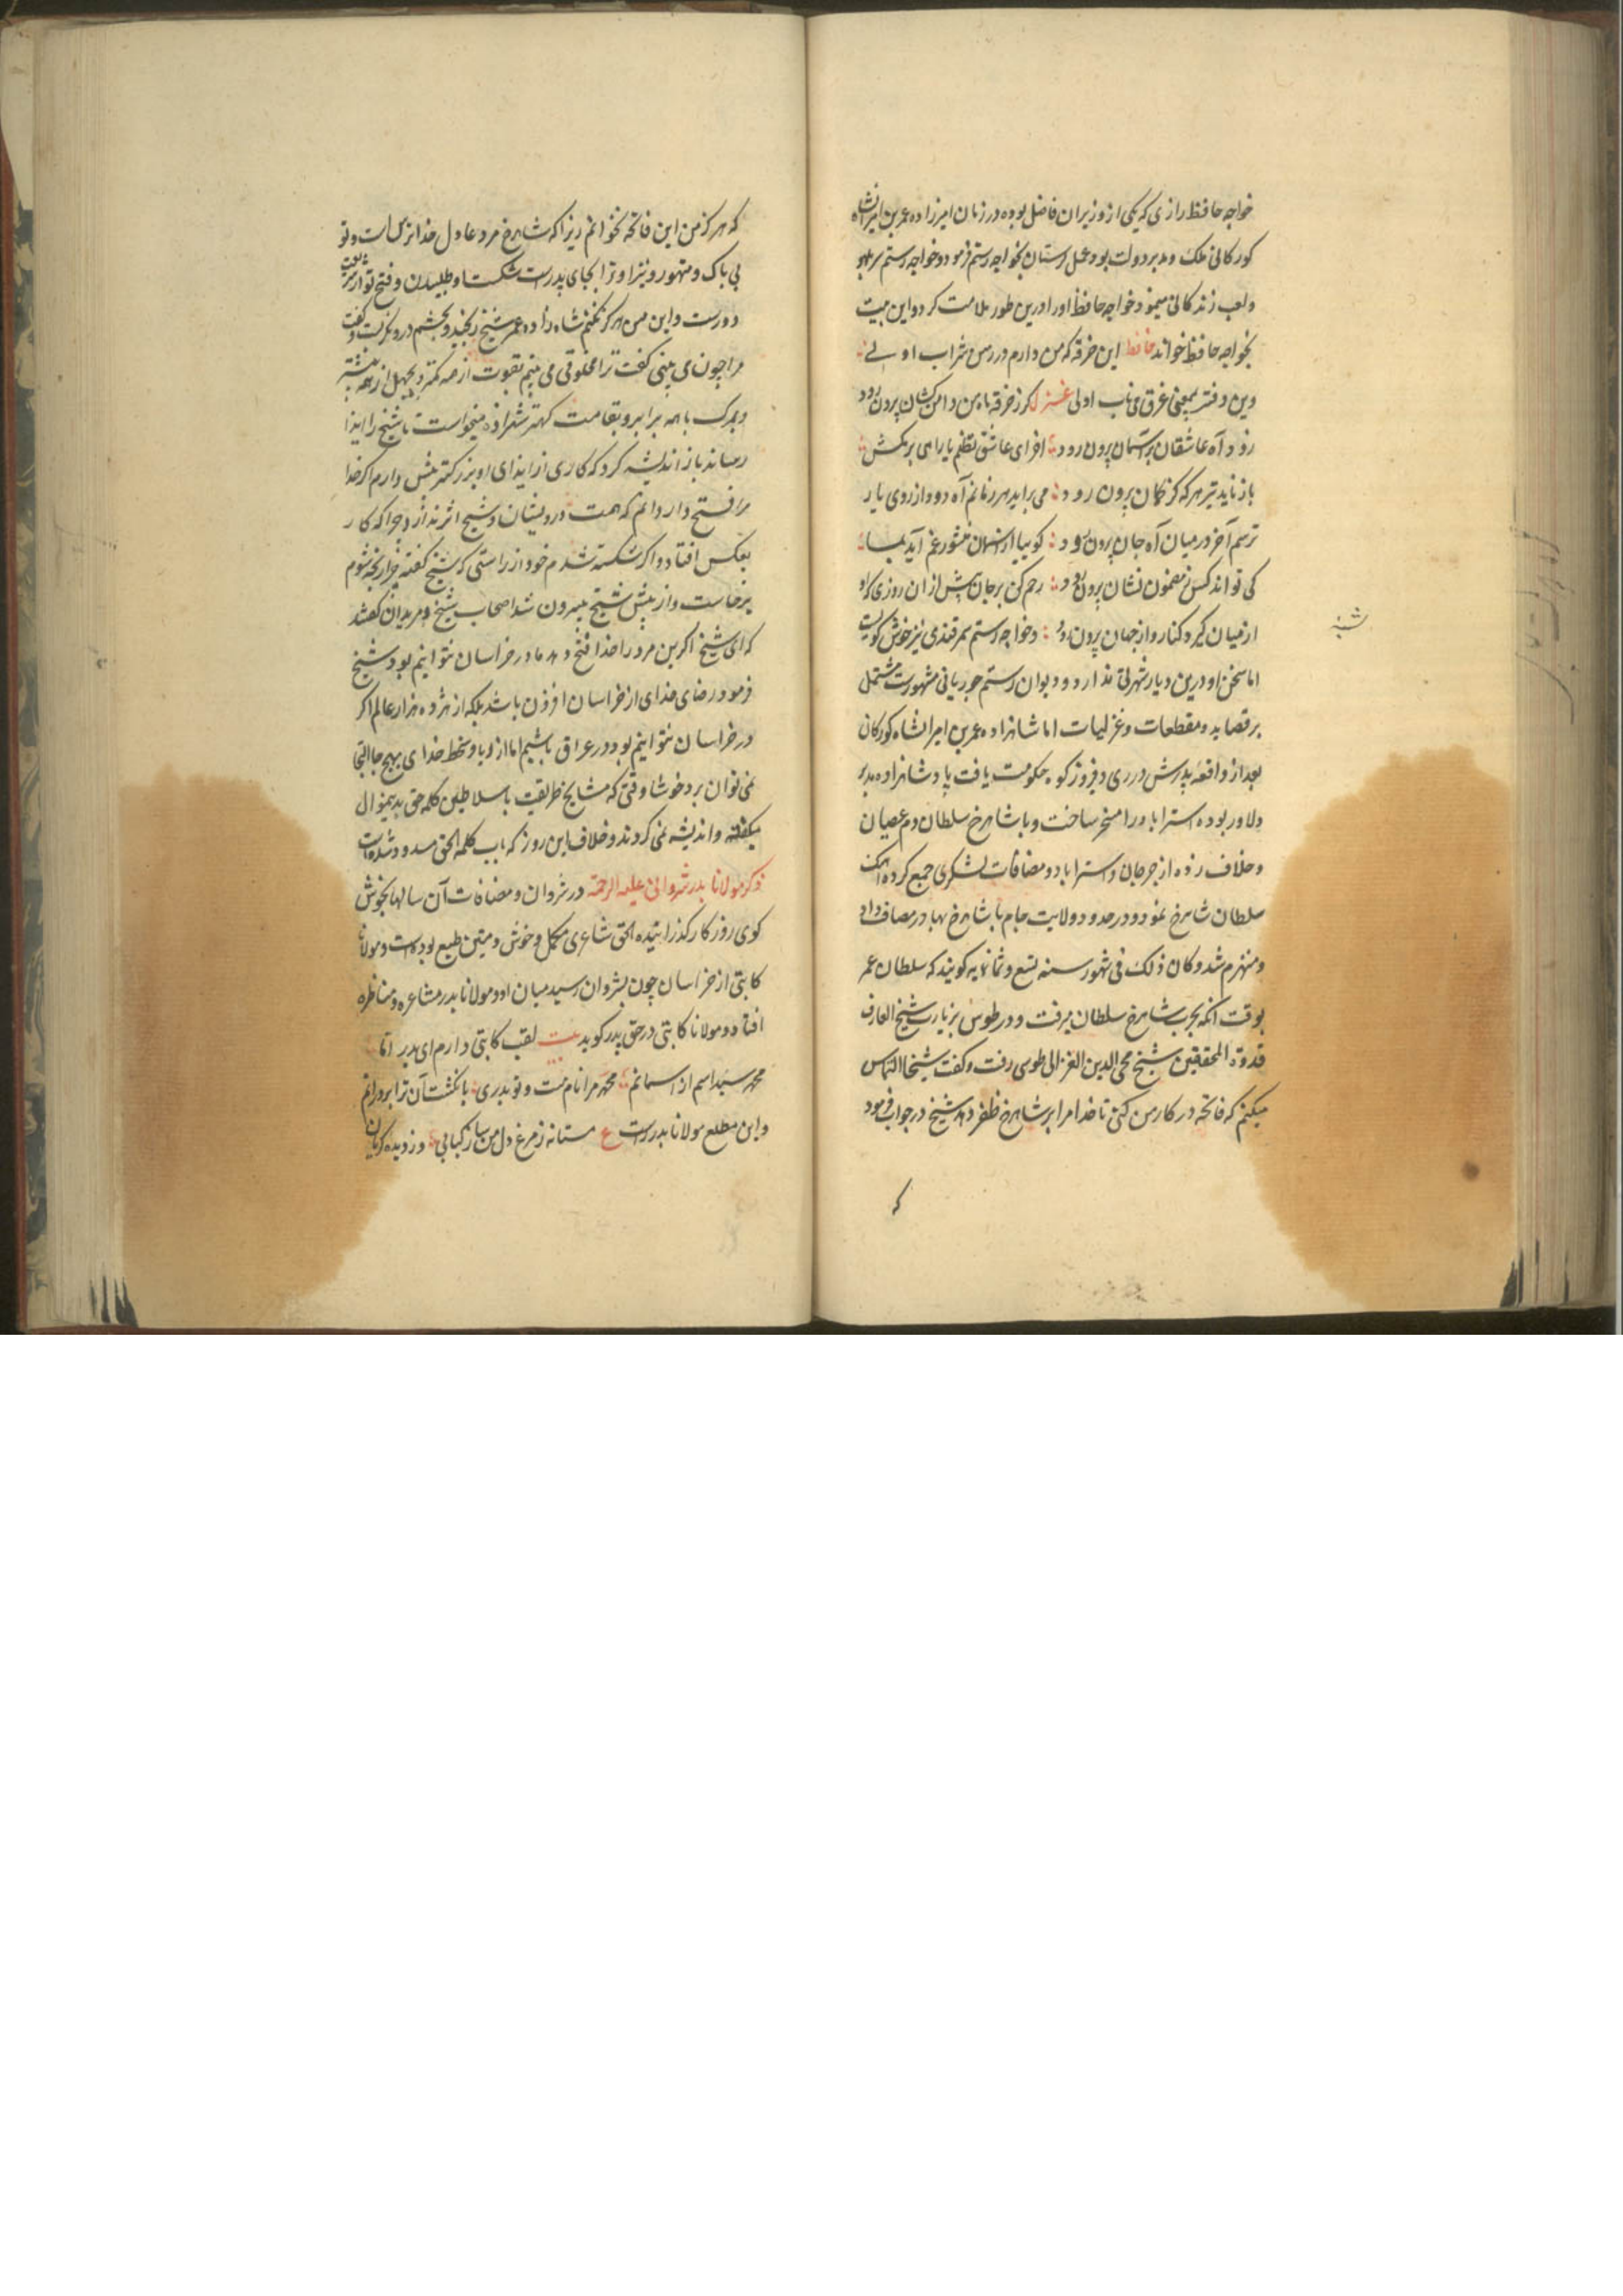 خواجه حافظ رازی که یکی از وزیران فاضل بوده در زمان امیرزاده عمر بن امیرانشاه
کورکانی ملک و مدبر دولت بود عمل رستان بخواجه رستم فرمود و خواجه رستم بر لهو
ولعب زندکانی میمود خواجه حافظ او را درین طور ملامت کرد و این بیت
بخواجه حافظ خواند حافظ این خرقه که من دارم در رهن شراب اولی
وین دفتر بیمعنی غرق می ناب اولی غزل کر ز خرقه ماه من دامن کشان برون رود
رود آه عاشقان بر آسمان برون رود ای عاشق بظلم یارا می برمکش
باز ناید تیر هر که کز کمان برون رود می براید هر زمانم آه دود از روی یار
ترسم آخر در میان آه جان برون رود کوییا از منشور غم آید بما
کی تواند کس ز مضمون نشان برون رود رحم کن بر جان پیش از ان روزی که او
از میان کیرد کنار و از جهان برون رود و خواجه رستم سمرقندی نیز خوش کویست
اما سخن او درین دیار شهرتی ندارد و دیوان رستم جوریانی مشهورست مشتمل
بر قصاید و مقطعات و غزلیات اما شاهزاده عمر بن امیرانشاه کورکان
بعد از واقعه پدرش در ری و فیروزکوه حکومت یافت پادشاهزاده مدبر
دلاور بوده استراباد را مسخر ساخت و با شاهرخ سلطان دم عصیان
و خلاف زده از جرجان و استراباد و مضافات لشکری جمع کرده آهنک
سلطان شاهرخ نمود و در حدود ولایت جام با شاهرخ بهادر مصاف داد
و منهزم شد و کان ذلک فی شهور سنه تسع و ثمانمایه کویند که سلطان عمر
بوقت آنکه بحرب شاهرخ سلطان میرفت و در طوس بزیارت شیخ العارف
قدوة المحققین شیخ محی الدین الغزالی طوسی رفت و کفت شیخا التماس
میکنم که فاتحه در کار من کنی تا خدا مرا بر شاهرخ ظفر دهد شیخ در جواب فرمود
که
شیخ
که هرکز من این فاتحه نخوانم زیرا که شاهرخ مرد عادل خدا ترس است و تو
بی باک و متهور و نیز او ترا بجای پدرست شکست او طلبیدن و فتح تو از شریعت
دورست و این من هرکز نکنم شاهزاده عمر از شیخ رنجید و بخشم درو نکریست و کفت
مرا چون می بینی کفت ترا مخلوقی می بینم بقوت از همه کمتر و بجهل از همه بیشتر
و بمرک با همه برابر و بقامت کهتر شهزاده میخواست تا شیخ را ایذا
رساند باز اندیشه کرد که کاری از ایذای او بزرکتر پیش دارم اکر خدا
مرا فتح داد دانم که همت درویشان و شیخ اثر ندارد چرا که کار
بعکس افتاد و اکر شکسته شدم خود از راستی که شیخ کفته چرا رنجه شوم
برخاست و از پیش شیخ بیرون شد اصحاب شیخ و مریدان کفتند
که ای شیخ اکر این مرد را خدا فتح دهد ما در خراسان نتوانیم بود شیخ
فرمود رضای خدای از خراسان افزون باشد بلکه از هژده هزار عالم اکر
در خراسان نتوانیم بود در عراق باشیم اما از و با و سخط خدای بهیچ جا التجا
نمی توان برد خوشا وقتی که مشایخ طریقت با سلاطین کلمه حق بدینموال
میکفتند و اندیشه نمی کردند و خلاف این روز که باب کلمة الحق مسدود شده است
ذکر مولانا بدر شروانی علیه الرحمة در شروان و مضافات آن سالها بخوش
کوی روزکار کذرانیده الحق شاعری مکمل و خوش و متین طبع بوده است و مولانا
کاتبی از خراسان چون بشروان رسید میان او و مولانا بدر مشاعره و مناظره
افتاد و مولانا کاتبی در حق بدر کوید بیت لقب کاتبی دارم ای بدر اما
محمد رسید اسم از اسمانم محمد مرا نام هست و تو بدری بانکشت آن ترا بردرانم
و این مطلع مولانا بدر راست ع مستانه ز مرغ دل من ساز کبابی وز دیده کریان